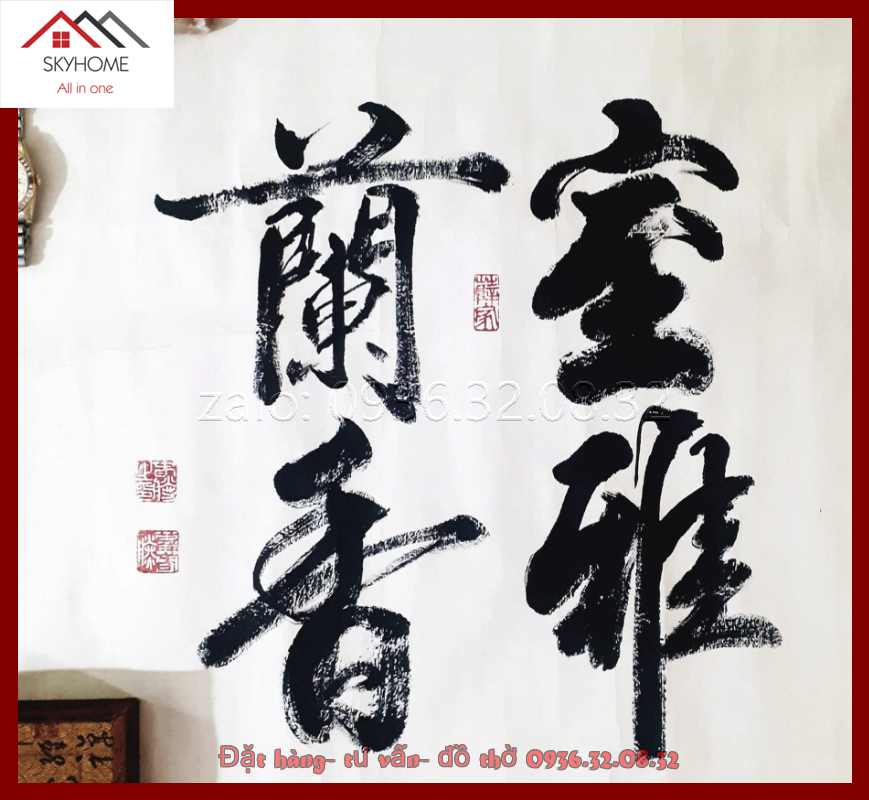 SKYHOME
All in one
室雅
蘭香
zalo: 0936.32.08.32
Đặt hàng- tư vấn- đồ thờ 0936.32.08.32